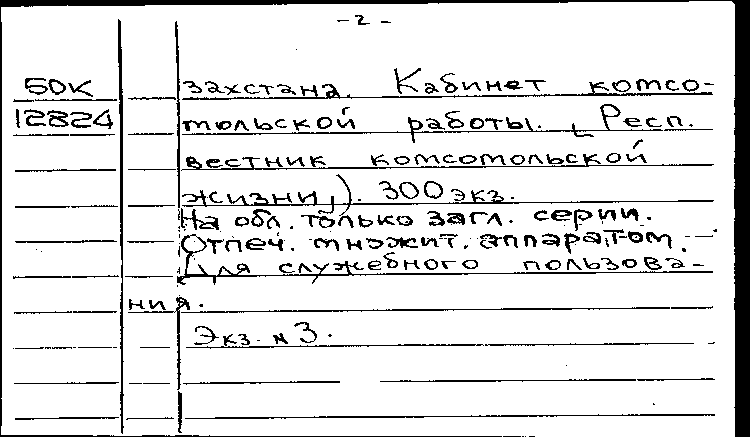 - 2 -
БОК захстана. Кабинет комсо-
12824 мольской работы. [Респ.
вестник комсомольской
жизни,). 300 экз.
На обл. только загл. серии.
Отпеч. множит. аппаратом.
Для служебного пользова-
ния.
Экз. № 3.